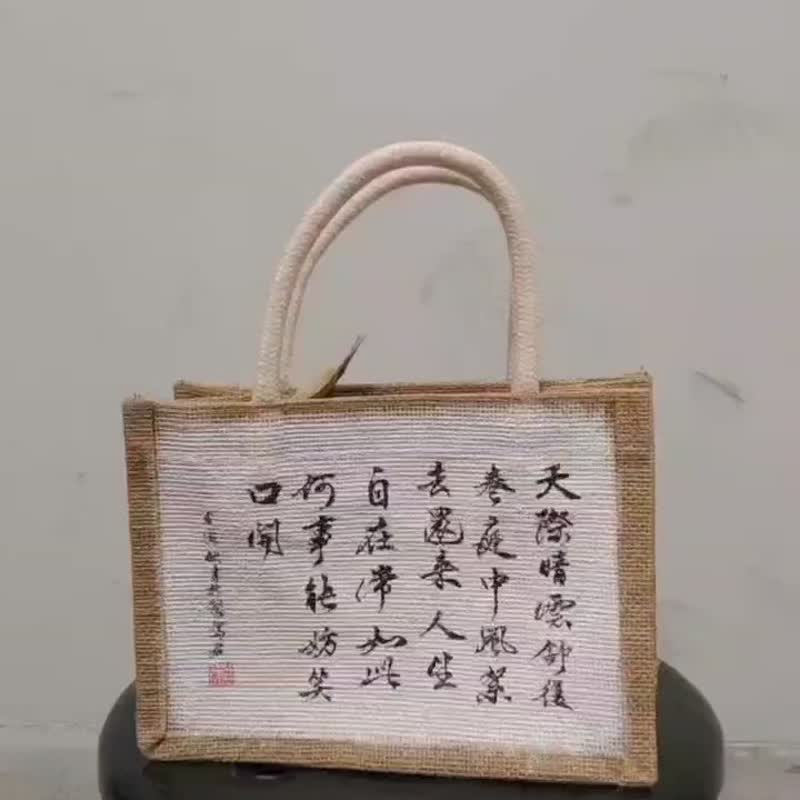 天際晴雲舒復
卷庭中風絮
去還來人生
自在常如此
何事能妨笑
口開